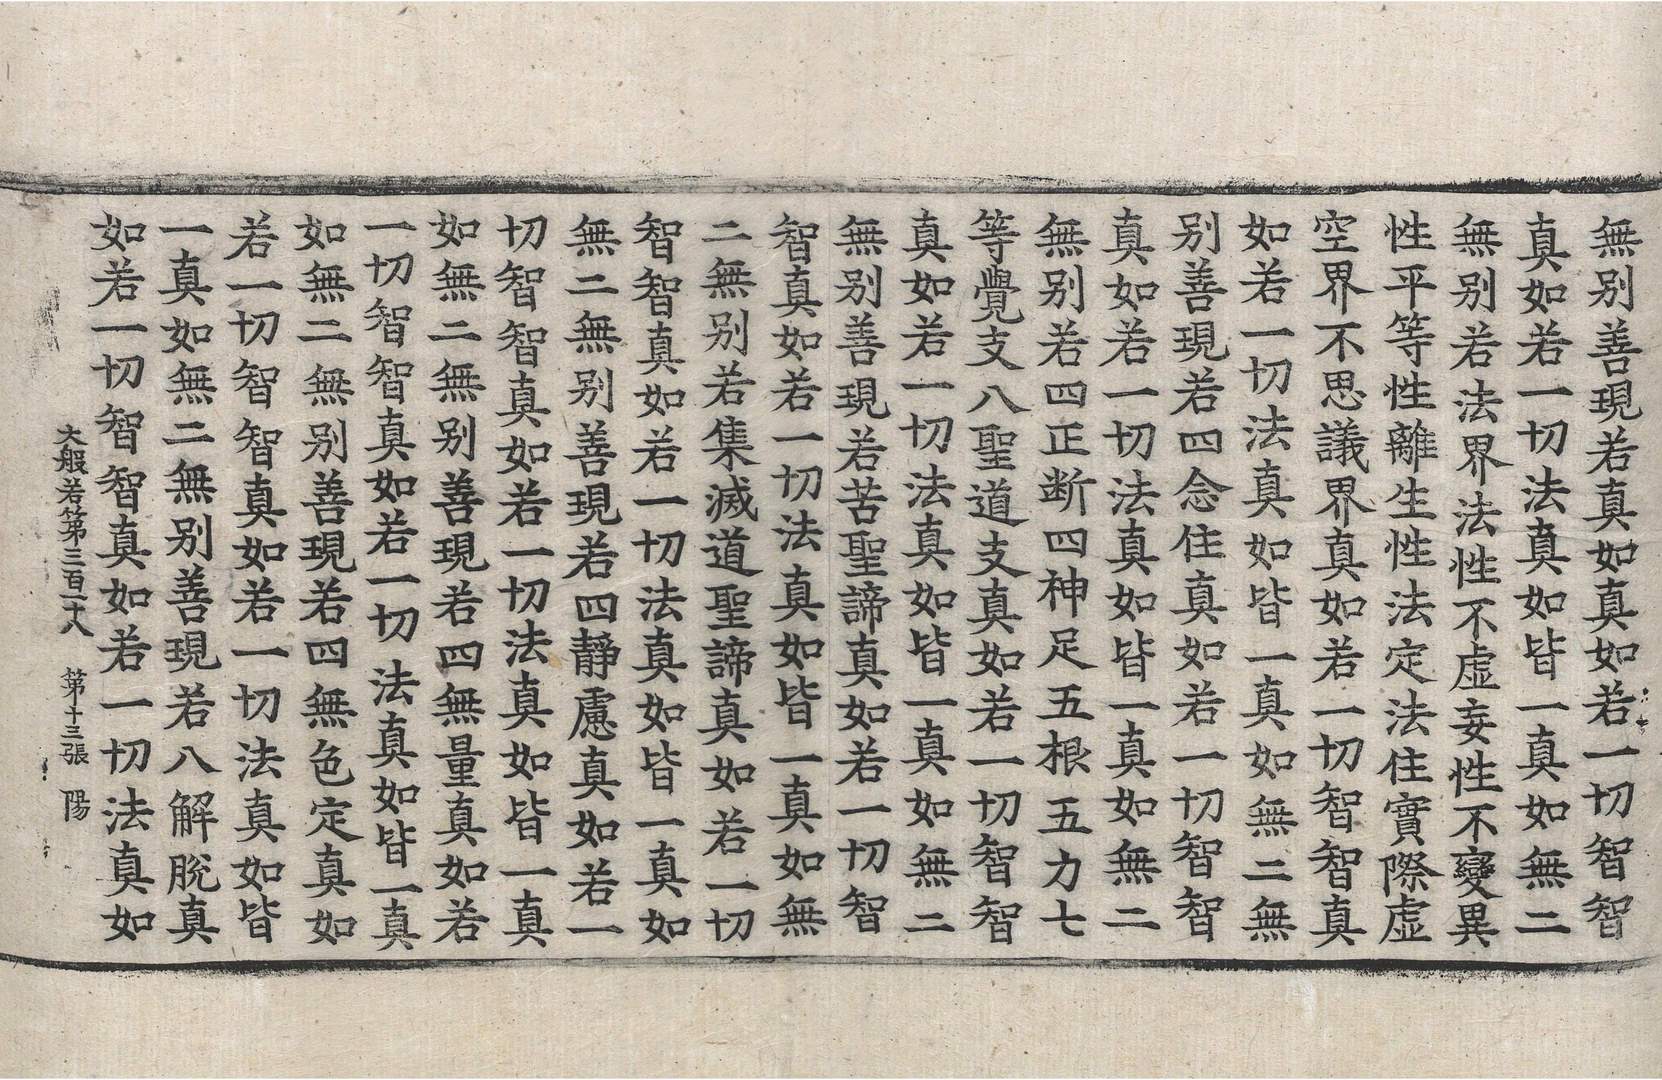 無别善現若真如真如若一切智智
真如若一切法真如皆一真如無二
無别若法界法性不虚妄性不變異
性平等性離生性法定法住實際虚
空界不思議界真如若一切智智真
如若一切法真如皆一真如無二無
别善現若四念住真如若一切智智
真如若一切法真如皆一真如無二
無别若四正断四神足五根五力七
等覺支八聖道支真如若一切智智
真如若一切法真如皆一真如無二
無别善現若苦聖諦真如若一切智
智真如若一切法真如皆一真如無
二無别若集滅道聖諦真如若一切
智智真如若一切法真如皆一真如
無二無别善現若四静慮真如若一
切智智真如若一切法真如皆一真
如無二無别善現若四無量真如若
一切智智真如若一切法真如皆一真
如無二無别善現若四無色定真如
若一切智智真如若一切法真如皆
一真如無二無别善現若八解脫真
如若一切智智真如若一切法真如
大般若第三百一十八 第十三張 陽